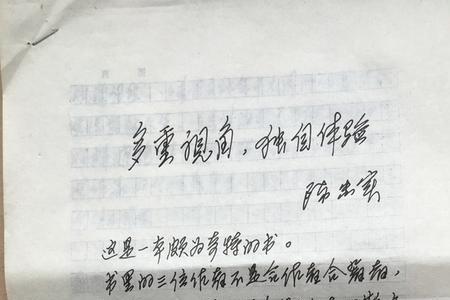 多重视角,独自体验
陈忠实
这是一本颇为奇特的书。
书里的三位作者不是合作者合著者,